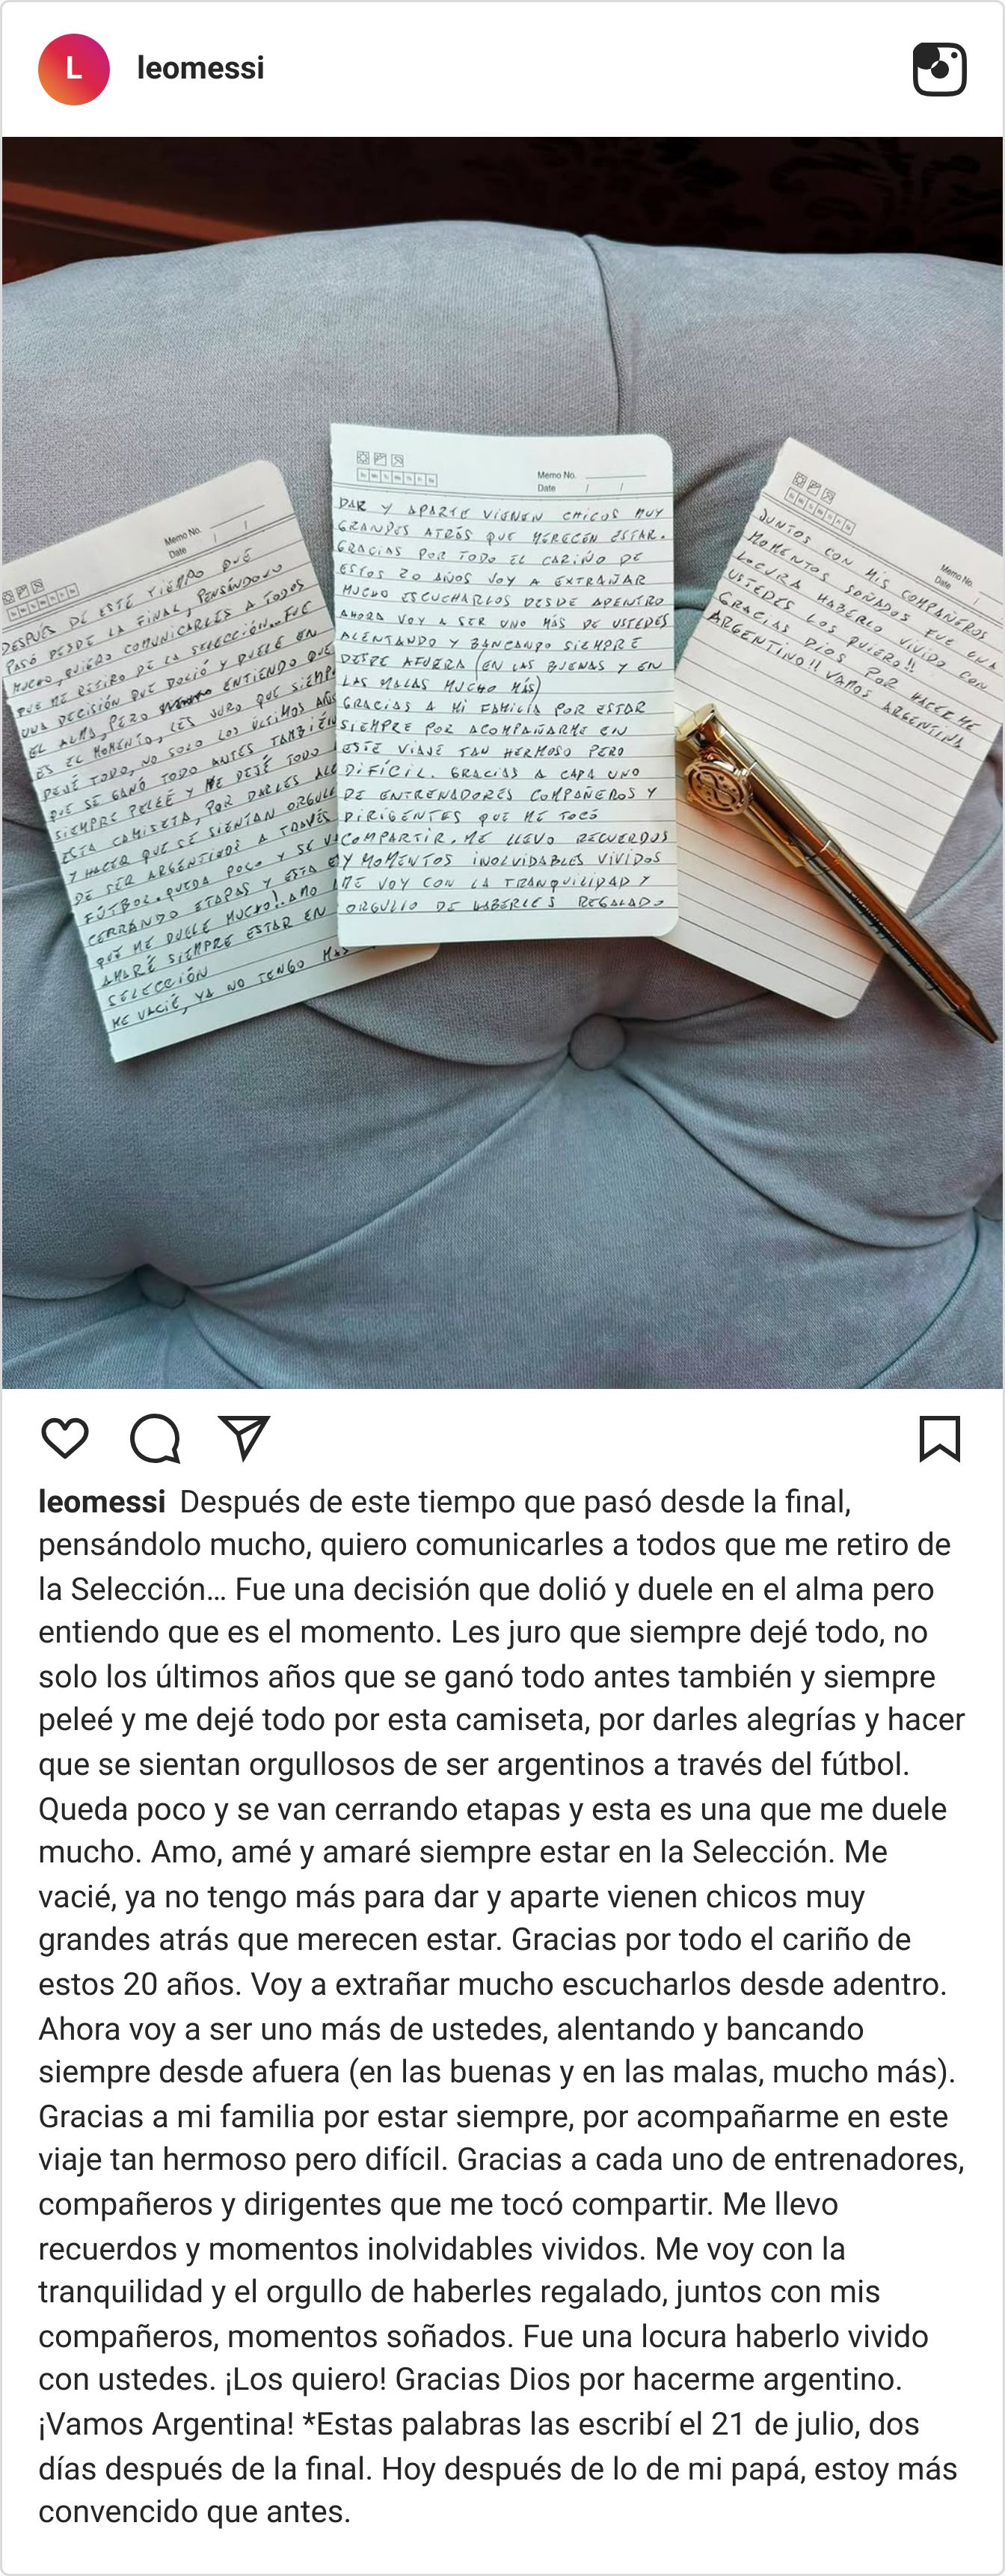 L
leomessi
Memo No.
Date / /
DESPUÉS DE ESTE TIEMPO QUE
PASÓ DESDE LA FINAL, PENSÁNDOLO
MUCHO, QUIERO COMUNICARLES A TODOS
QUE ME RETIRO DE LA SELECCIÓN... FUE
UNA DECISIÓN QUE DOLIÓ Y DUELE EN
EL ALMA, PERO ENTIENDO QUE
ES EL MOMENTO, LES JURO QUE SIEMP
DEJÉ TODO, NO SOLO LOS ÚLTIMOS AÑO
QUE SE GANÓ TODO ANTES TAMBIÉN
SIEMPRE PELEÉ Y ME DEJÉ TODO
ESTA CAMISETA, POR DARLES ALE
Y HACER QUE SE SIENTAN ORGULL
DE SER ARGENTINOS A TRAVÉS
FÚTBOL. QUEDA POCO Y SE VA
CERRANDO ETAPAS Y ESTA E
QUE ME DUELE MUCHO!. AMO
AMARÉ SIEMPRE ESTAR EN
SELECCIÓN
ME VACIÉ, YA NO TENGO MAS
Memo No.
Date / /
DAR Y APARTE VIENEN CHICOS MUY
GRANDES ATRÁS QUE MERECEN ESTAR.
GRACIAS POR TODO EL CARIÑO DE
ESTOS 20 AÑOS VOY A EXTRAÑAR
MUCHO ESCUCHARLOS DESDE ADENTRO
AHORA VOY A SER UNO MÁS DE USTEDES
ALENTANDO Y BANCANDO SIEMPRE
DESDE AFUERA (EN LAS BUENAS Y EN
LAS MALAS MUCHO MÁS)
GRACIAS A MI FAMILIA POR ESTAR
SIEMPRE POR ACOMPAÑARME EN
ESTE VIAJE TAN HERMOSO PERO
DIFÍCIL. GRACIAS A CADA UNO
DE ENTRENADORES COMPAÑEROS Y
DIRIGENTES QUE ME TOCÓ
COMPARTIR. ME LLEVO RECUERDOS
Y MOMENTOS INOLVIDABLES VIVIDOS
ME VOY CON LA TRANQUILIDAD Y
ORGULLO DE HABERLES REGALADO
Memo No.
Date /
JUNTOS CON MIS COMPAÑEROS
MOMENTOS SOÑADOS FUE UNA
LOCURA HABERLO VIVIDO CON
USTEDES LOS QUIERO!!
GRACIAS DIOS POR HACERME
ARGENTINO!! VAMOS ARGENTINA
leomessi Después de este tiempo que pasó desde la final,
pensándolo mucho, quiero comunicarles a todos que me retiro de
la Selección... Fue una decisión que dolió y duele en el alma pero
entiendo que es el momento. Les juro que siempre dejé todo, no
solo los últimos años que se ganó todo antes también y siempre
peleé y me dejé todo por esta camiseta, por darles alegrías y hacer
que se sientan orgullosos de ser argentinos a través del fútbol.
Queda poco y se van cerrando etapas y esta es una que me duele
mucho. Amo, amé y amaré siempre estar en la Selección. Me
vacié, ya no tengo más para dar y aparte vienen chicos muy
grandes atrás que merecen estar. Gracias por todo el cariño de
estos 20 años. Voy a extrañar mucho escucharlos desde adentro.
Ahora voy a ser uno más de ustedes, alentando y bancando
siempre desde afuera (en las buenas y en las malas, mucho más).
Gracias a mi familia por estar siempre, por acompañarme en este
viaje tan hermoso pero difícil. Gracias a cada uno de entrenadores,
compañeros y dirigentes que me tocó compartir. Me llevo
recuerdos y momentos inolvidables vividos. Me voy con la
tranquilidad y el orgullo de haberles regalado, juntos con mis
compañeros, momentos soñados. Fue una locura haberlo vivido
con ustedes. ¡Los quiero! Gracias Dios por hacerme argentino.
¡Vamos Argentina! *Estas palabras las escribí el 21 de julio, dos
días después de la final. Hoy después de lo de mi papá, estoy más
convencido que antes.